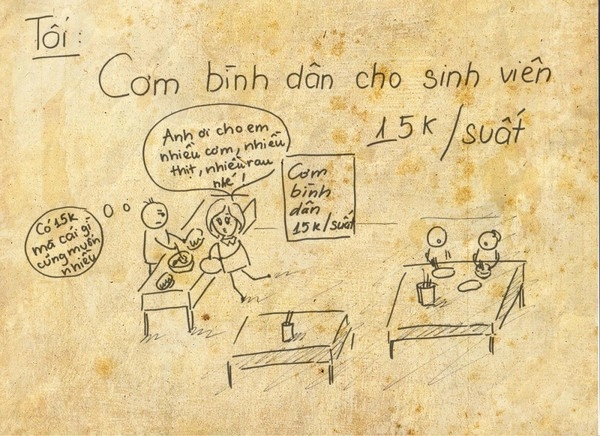 Tôi:
Cơm bình dân cho sinh viên
15k/suất
Anh ơi cho em
nhiều cơm, nhiều
thịt, nhiều rau
nhé!
Cơm
bình
dân
15k/suất
Có 15k
mà cái gì
cũng muốn
nhiều